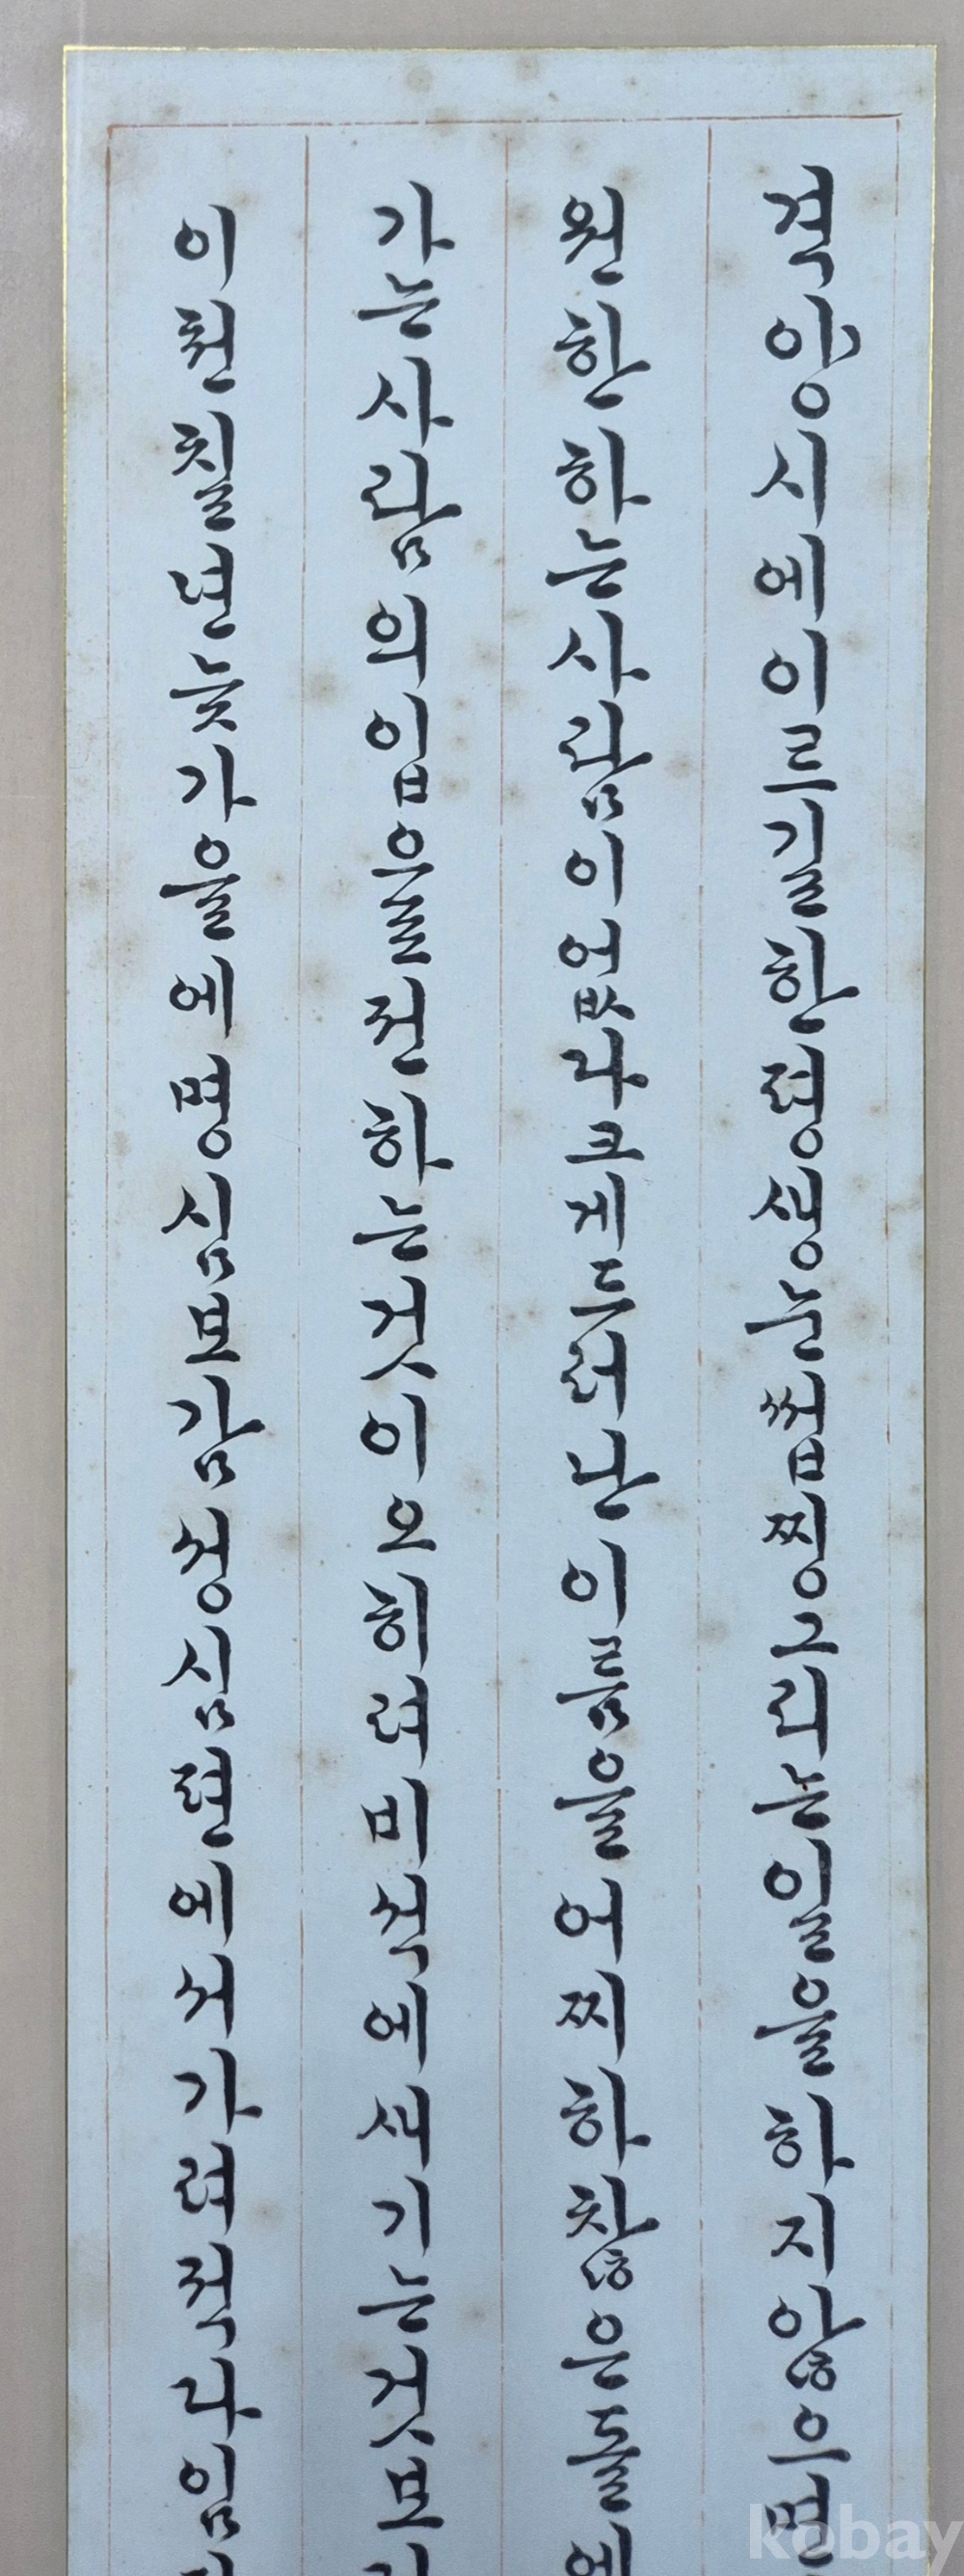 격양시에이르길한평생눈썹찡그리는일을하지않으면
원한하는사람이없나크게드러난이름을어찌하찮은돌에
가는사람의입을전하는것이오히려비석에새기는것보
이천칠년늦가을에명심보감성심편에서가려적다임
kobay